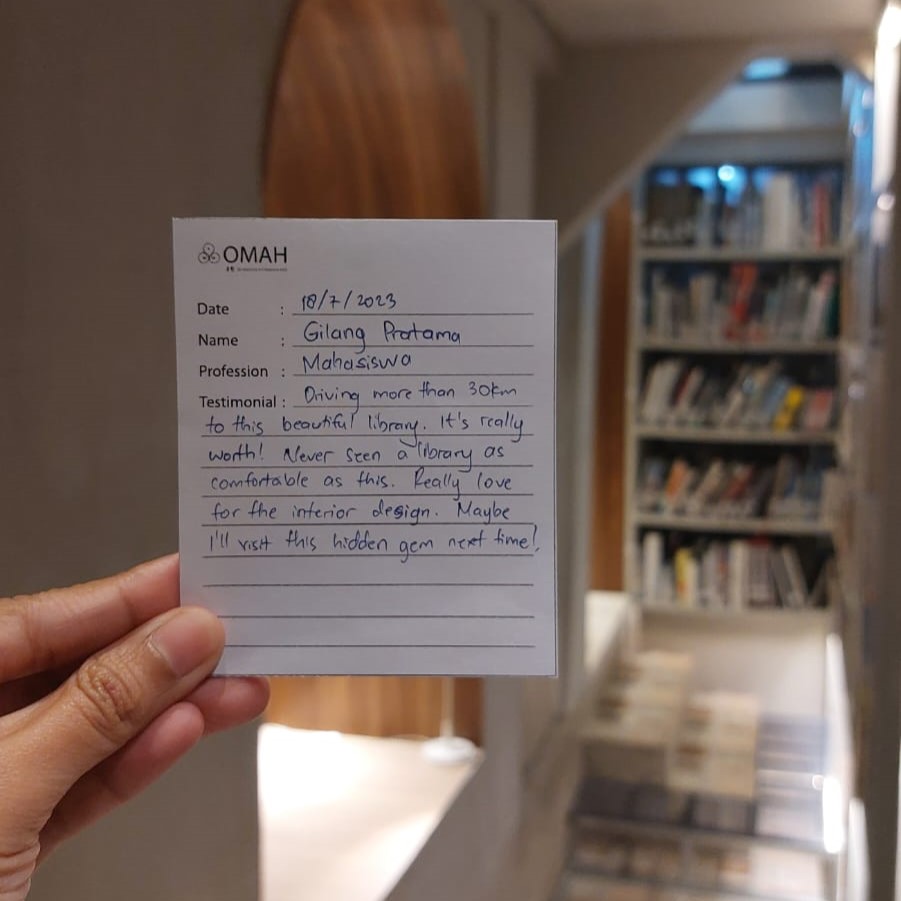 OMAH
Date : 18/7/2023
Name : Gilang Pratama
Profession : Mahasiswa
Testimonial : Driving more than 30km
to this beautiful library. It's really
worth! Never seen a library as
comfortable as this. Really love
for the interior design. Maybe
I'll visit this hidden gem next time!